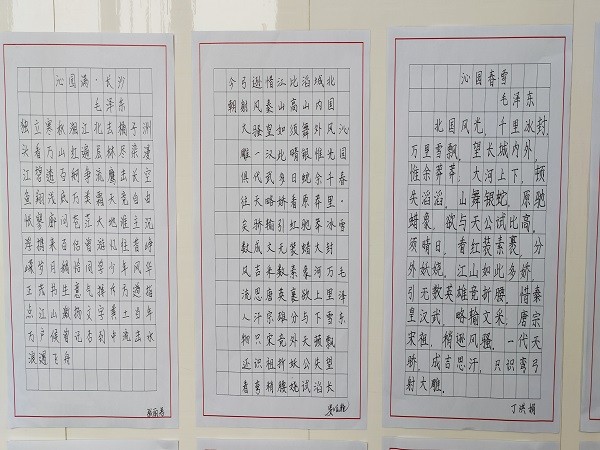 沁园春·长沙
毛泽东
独立寒秋湘江北去橘子洲
头看万山红遍层林尽染漫
江碧透百舸争流鹰击长空
鱼翔浅底万类霜天竞自由
怅寥廓问苍茫大地谁主沉
浮携来百侣曾游忆往昔峥
嵘岁月稠恰同学少年风华
正茂书生意气挥斥方遒指
点江山激扬文字粪土当年
万户侯曾记否到中流击水
浪遏飞舟
沁园春·雪 毛泽东
北国风光千里冰封万里雪飘望长
城内外惟余莽莽大河上下顿失滔
滔山舞银蛇原驰蜡象欲与天公试
比高须晴日看红装素裹分外妖娆
江山如此多娇引无数英雄竞折腰
惜秦皇汉武略输文采唐宗宋祖稍
逊风骚一代天骄成吉思汗只识弯
弓射大雕俱往矣数风流人物还看
今朝
沁园春雪
毛泽东
北国风光，千里冰封，
万里雪飘。望长城内外，
惟余莽莽，大河上下，顿
失滔滔。山舞银蛇，原驰
蜡象，欲与天公试比高，
须晴日，看红装素裹，分
外妖娆。江山如此多娇，
引无数英雄竞折腰。惜秦
皇汉武，略输文采，唐宗
宋祖，稍逊风骚。一代天
骄，成吉思汗，只识弯弓
射大雕。
丁洪娟